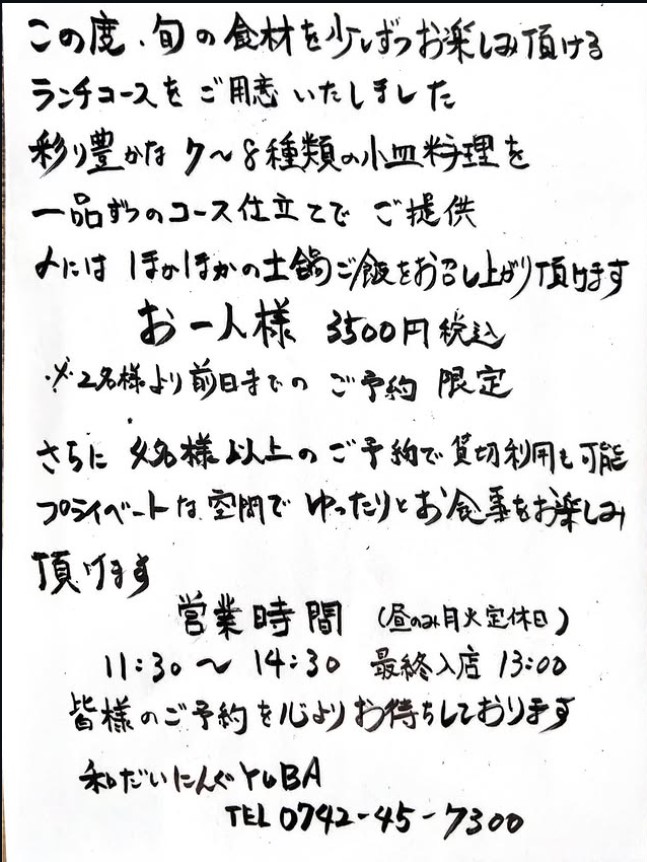 この度、旬の食材を少しずつお楽しみ頂ける
ランチコースをご用意いたしました
彩り豊かな 7〜8種類の小皿料理を
一品ずつのコース仕立てで ご提供
〆には ほかほかの土鍋ご飯をお召し上がり頂けます
お一人様 3500円税込
※2名様より前日までの ご予約 限定
さらに 4名様以上のご予約で貸切利用も可能
プライベートな空間で ゆったりとお食事をお楽しみ
頂けます
営業時間 (昼のみ月火定休日)
11:30〜14:30 最終入店 13:00
皆様のご予約を心よりお待ちしております
和だいにんぐYUBA
TEL 0742-45-7300